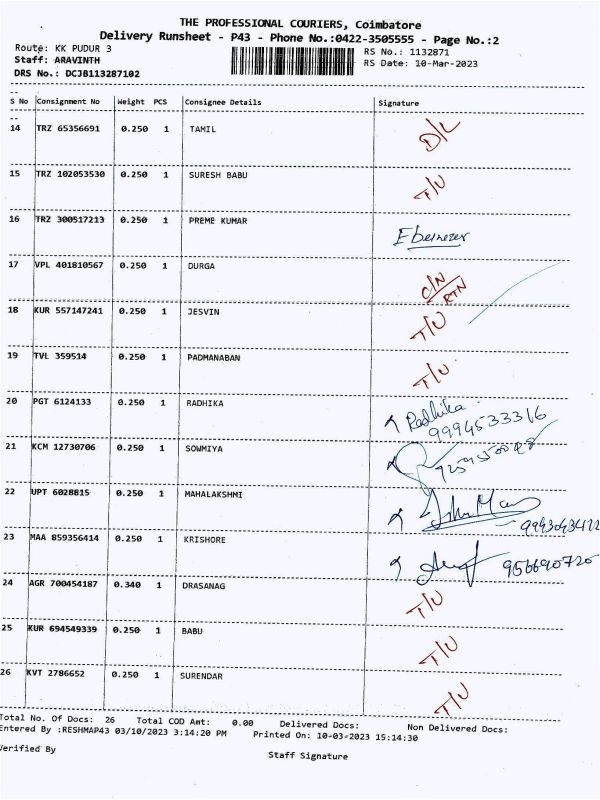 THE PROFESSIONAL COURIERS, Coimbatore
Delivery Runsheet - P43 - Phone No.:0422-3505555 - Page No.:2
Route: KK PUDUR 3 RS No.: 1132871
Staff: ARAVINTH RS Date: 10-Mar-2023
DRS No.: DCJB113287102
S No Consignment No Weight PCS Consignee Details Signature
14 TRZ 65356691 0.250 1 TAMIL D/L
15 TRZ 102053530 0.250 1 SURESH BABU T/U
16 TRZ 300517213 0.250 1 PREME KUMAR Ebenezer
17 VPL 401810567 0.250 1 DURGA C/N
RTN
18 KUR 557147241 0.250 1 JESVIN T/U
19 TVL 359514 0.250 1 PADMANABAN T/U
20 PGT 6124133 0.250 1 RADHIKA Radhika
9994533316
21 KCM 12730706 0.250 1 SOWMIYA
22 UPT 6028815 0.250 1 MAHALAKSHMI
23 MAA 859356414 0.250 1 KRISHORE 956690720
24 AGR 700454187 0.340 1 DRASANAG T/U
25 KUR 694549339 0.250 1 BABU T/U
26 KVT 2786652 0.250 1 SURENDAR T/U
Total No. Of Docs: 26 Total COD Amt: 0.00 Delivered Docs: Non Delivered Docs:
Entered By :RESHMAP43 03/10/2023 3:14:20 PM Printed On: 10-03-2023 15:14:30
Verified By Staff Signature